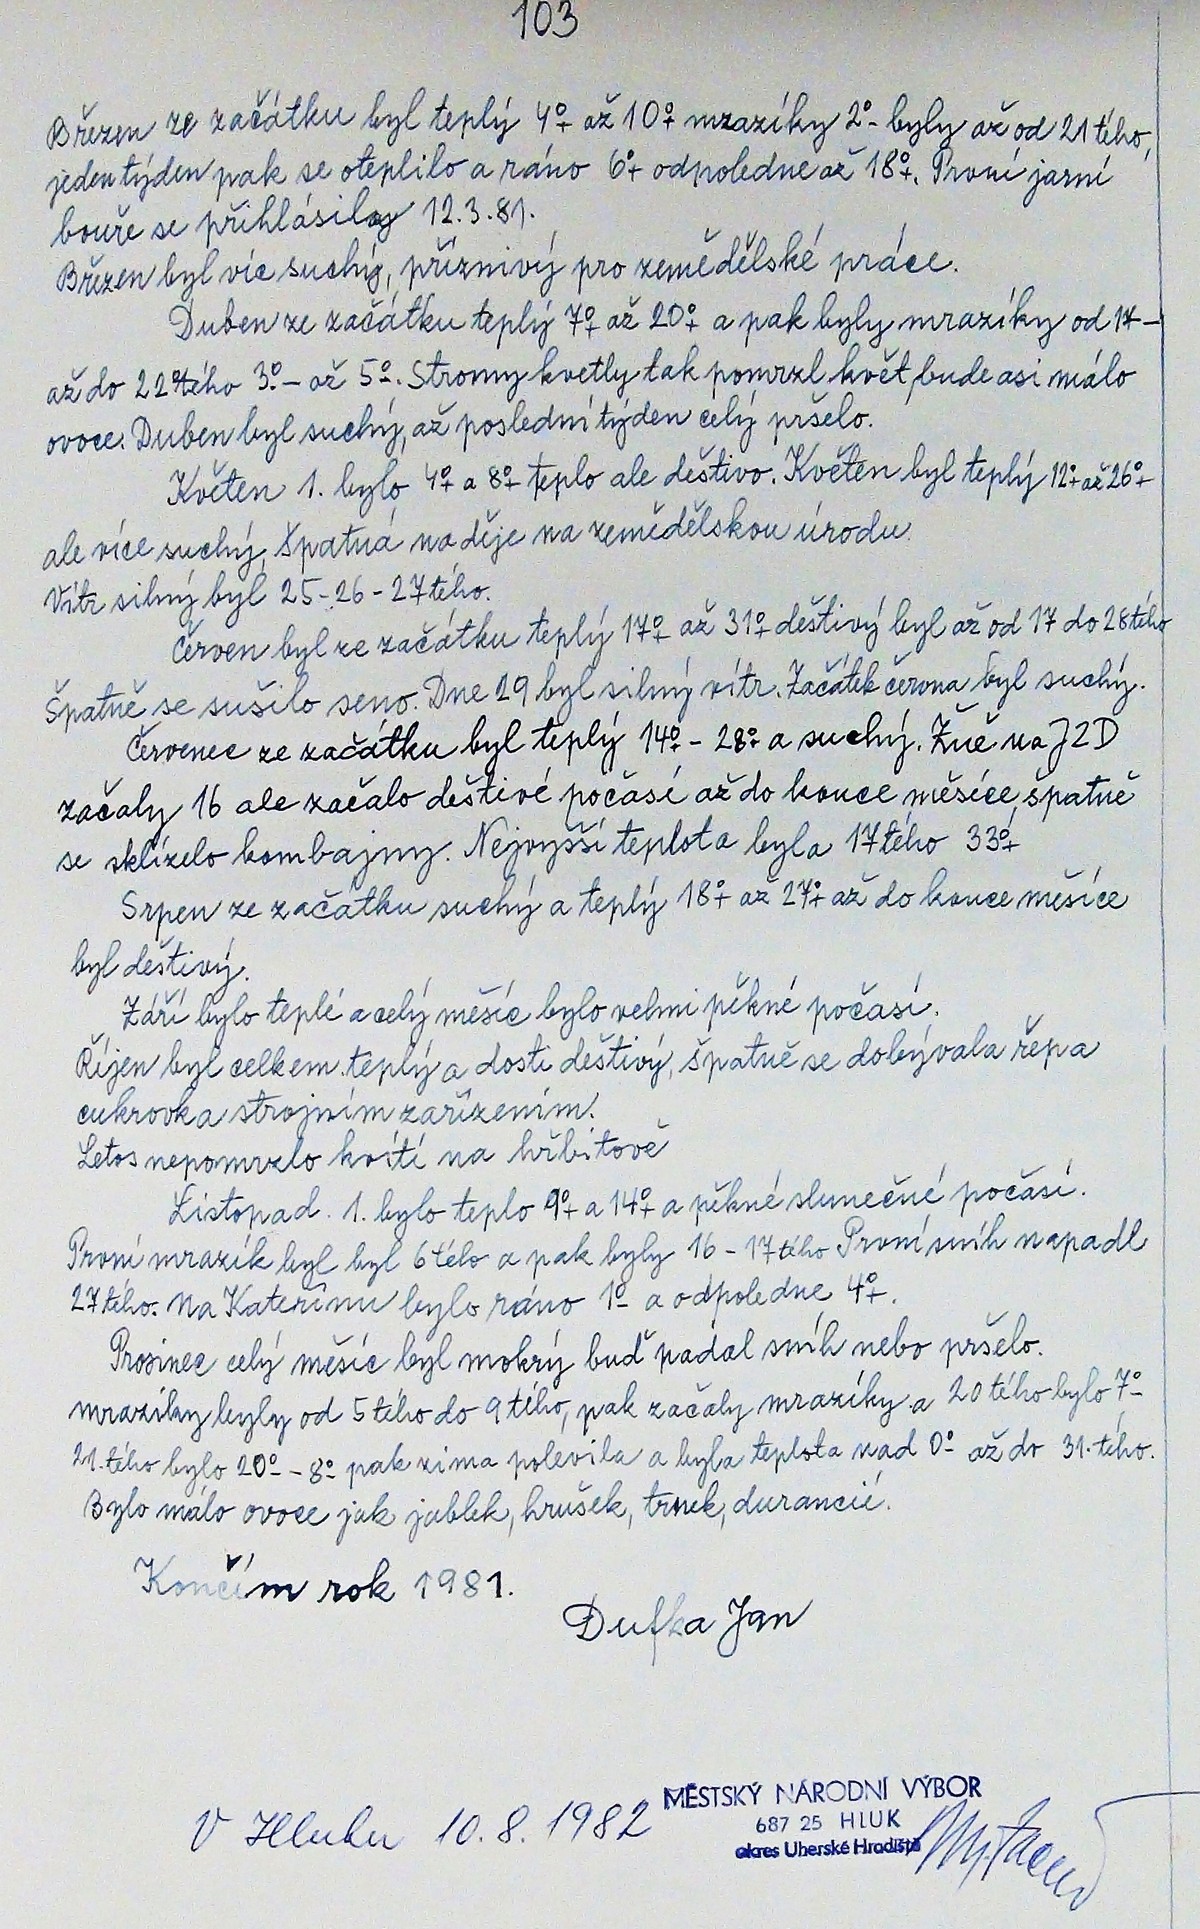 103
Březen ze začátku byl teplý 4°+ až 10°+ mrazíky 2°- byly až od 21 tého,
jeden týden pak se oteplilo a ráno 6°+ odpoledne až 18°+. První jarní
bouře se přihlásily 12.3.81.
Březen byl víc suchý, příznivý pro zemědělské práce.
Duben ze začátku teplý 7°+ až 20°+ a pak byly mrazíky od 17-
až do 22tého 3°- až 5°-. Stromy kvetly tak pomrzl květ, bude asi málo
ovoce. Duben byl suchý, až poslední týden celý pršelo.
Květen 1. bylo 4°+ a 8°+ teplo ale deštivo. Květen byl teplý 12°+ až 26°+
ale více suchý, špatná naděje na zemědělskou úrodu.
Vítr silný byl 25-26-27tého.
Červen byl ze začátku teplý 17°+ až 31°+ deštivý byl až od 17 do 28tého
Špatně se sušilo seno. Dne 29 byl silný vítr. Začátek června byl suchý.
Červenec ze začátku byl teplý 14°+ - 28°+ a suchý. Žně na JZD
začaly 16 ale začalo deštivé počasí až do konce měsíce, špatně
se sklízelo kombajny. Nejvyšší teplota byla 17tého 33°+
Srpen ze začátku suchý a teplý 18°+ až 27°+ až do konce měsíce
byl deštivý.
Září bylo teplé a celý měsíc bylo velmi pěkné počasí.
Říjen byl celkem teplý a dosti deštivý, špatně se dobývala řepa
cukrovka strojním zařízením.
Letos nepomrzlo kvítí na hřbitově
Listopad. 1. bylo teplo 9°+ a 14°+ a pěkné slunečné počasí.
První mrazík byl byl 6 tého a pak byly 16 - 17tého První sníh napadl
27tého. Na Kateřinu bylo ráno 1°- a odpoledne 4°+.
Prosinec celý měsíc byl mokrý buď padal sníh nebo pršelo.
mrazíky byly od 5 tého do 9 tého, pak začaly mrazíky a 20 tého bylo 7°-
21. tého bylo 20°- - 8°- pak zima polevila a byla teplota nad 0° až do 31. tého.
Bylo málo ovoce jak jablek, hrušek, trnek, durancií.
Končím rok 1981.
Dufka Jan
V Hluku 10.8.1982
MĚSTSKÝ NÁRODNÍ VÝBOR
687 25 HLUK
okres Uherské Hradiště